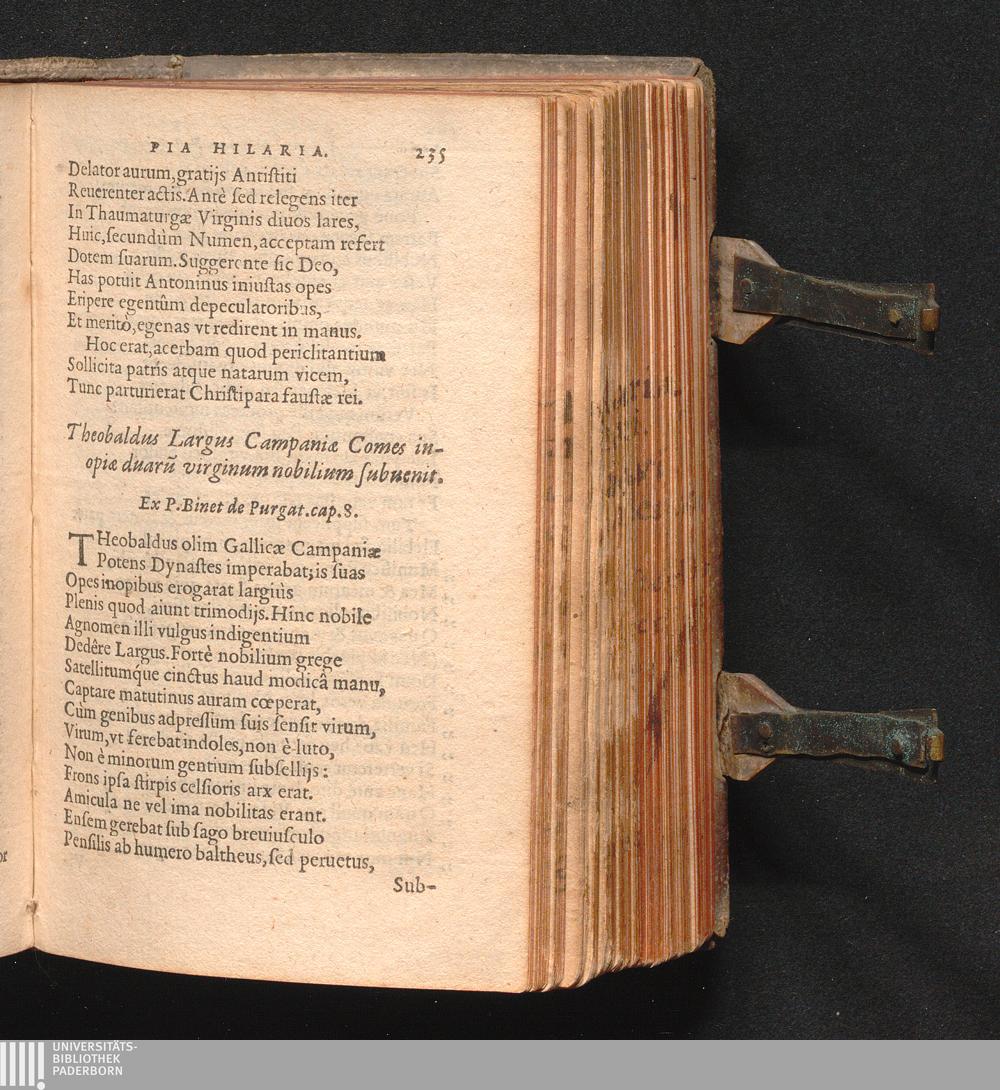 PIA HILARIA. 235
Delator aurum, gratijs Antiſtiti
Reuerenter actis. Antè ſed relegens iter
In Thaumaturgæ Virginis diuos lares,
Huic, ſecundùm Numen, acceptam refert
Dotem ſuarum. Suggerente ſic Deo,
Has potuit Antoninus iniuſtas opes
Eripere egentûm depeculatoribus,
Et meritò, egenas vt redirent in manus.
Hoc erat, acerbam quod periclitantium
Sollicita patris atque natarum vicem,
Tunc parturierat Chriſtipara fauſtæ rei.
Theobaldus Largus Campaniæ Comes in-
opiæ duarũ virginum nobilium ſubuenit.
Ex P. Binet de Purgat. cap. 8.
THeobaldus olim Gallicæ Campaniæ
Potens Dynaſtes imperabat; is ſuas
Opes inopibus erogarat largiùs
Plenis quod aiunt trimodijs. Hinc nobile
Agnomen illi vulgus indigentium
Dedêre Largus. Fortè nobilium grege
Satellitumq́ue cinctus haud modicâ manu,
Captare matutinus auram cœperat,
Cùm genibus adpreſſum ſuis ſenſit virum,
Virum, vt ferebat indoles, non è luto,
Non è minorum gentium ſubſellijs:
Frons ipſa ſtirpis celſioris arx erat.
Amicula ne vel ima nobilitas erant.
Enſem gerebat ſub ſago breuiuſculo
Penſilis ab humero baltheus, ſed peruetus,
Sub-
UNIVERSITÄTS-
BIBLIOTHEK
PADERBORN